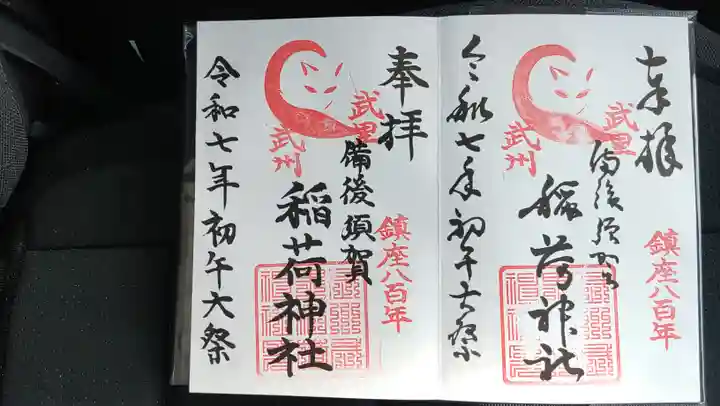 奉拝
鎮座八百年
武里
備後須賀
稲荷神社
武州
令和七年初午大祭
奉拝
鎮座八百年
武里
備後須賀
稲荷神社
武州
令和七年初午大祭